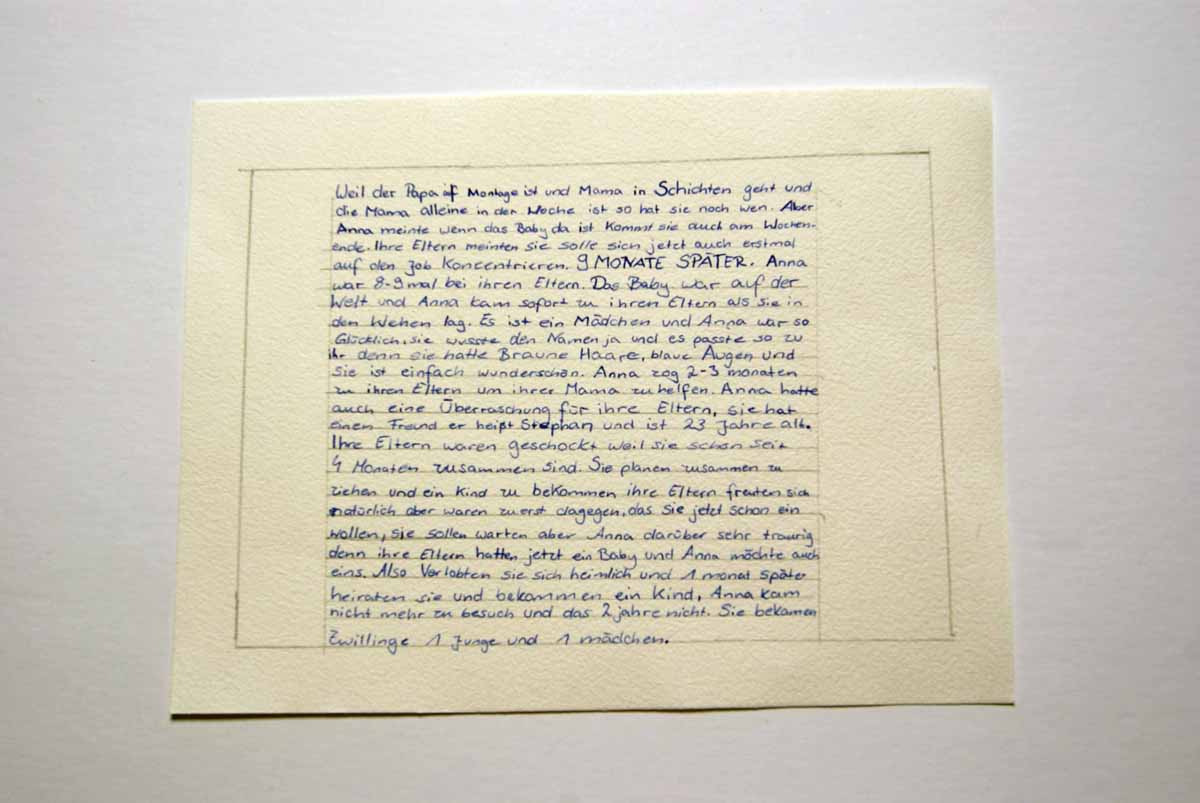 Weil der Papa af Montage ist und Mama in Schichten geht und
die Mama alleine in der Woche ist so hat sie noch wen. Aber
Anna meinte wenn das Baby da ist kommt sie auch am Wochen-
ende. Ihre Eltern meinten sie solle sich jetzt auch erstmal
auf den Job Konzentrieren. 9 MONATE SPÄTER. Anna
war 8-9 mal bei ihren Eltern. Das Baby war auf der
Welt und Anna kam sofort zu ihren Eltern als sie in
den Wehen lag. Es ist ein Mädchen und Anna war so
Glücklich, sie wusste den Namen ja und es passte so zu
ihr denn sie hatte Braune Haare, blaue Augen und
sie ist einfach wunderschön. Anna zog 2-3 monaten
zu ihren Eltern um ihrer Mama zu helfen. Anna hatte
auch eine Überraschung für ihre Eltern, sie hat
einen Freund er heißt Stephan und ist 23 Jahre alt.
Ihre Eltern waren geschockt weil sie schon seit
4 Monaten zusammen sind. Sie planen zusammen zu
ziehen und ein Kind zu bekommen ihre Eltern freuten sich
natürlich aber waren zuerst dagegen, das sie jetzt schon ein
wollen, sie sollen warten aber Anna darüber sehr traurig
denn ihre Eltern hatten jetzt ein Baby und Anna möchte auch
eins. Also Verlobten sie sich heimlich und 1 monat später
heiraten sie und bekommen ein Kind, Anna kam
nicht mehr zu besuch und das 2 jahre nicht. Sie bekamen
Zwillinge 1 Junge und 1 mädchen.